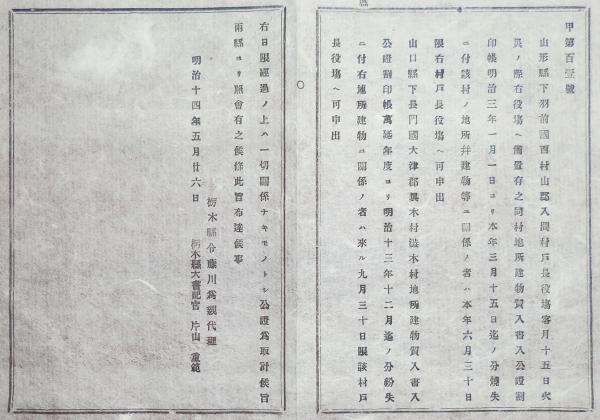 甲第百壹號
山形縣下羽前國西村山郡入間村戸長役塲客月十五日火
災ノ際右役塲ヘ備置有之同村地所建物質入書入公證割
印帳明治三年一月一日ヨリ本年三月十五日迄ノ分燒失
ニ付該村ノ地所并建物等ニ關係ノ者ハ本年六月三十日
限右村戸長役塲ヘ可申出
山口縣下長門國大津郡澁木村地所建物質入書入
公證割印帳萬延年度ヨリ明治十三年十二月迄ノ分紛失
ニ付右地所建物ニ關係ノ者ハ來ル九月三十日限該村戸
長役塲ヘ可申出
右日限經過ノ上ハ一切關係ナキモノトシ公證爲取計候旨
兩縣ヨリ照會有之候條此旨布達候事
明治十四年五月廿六日
栃木縣令藤川爲親代理
栃木縣大書記官 片山重範